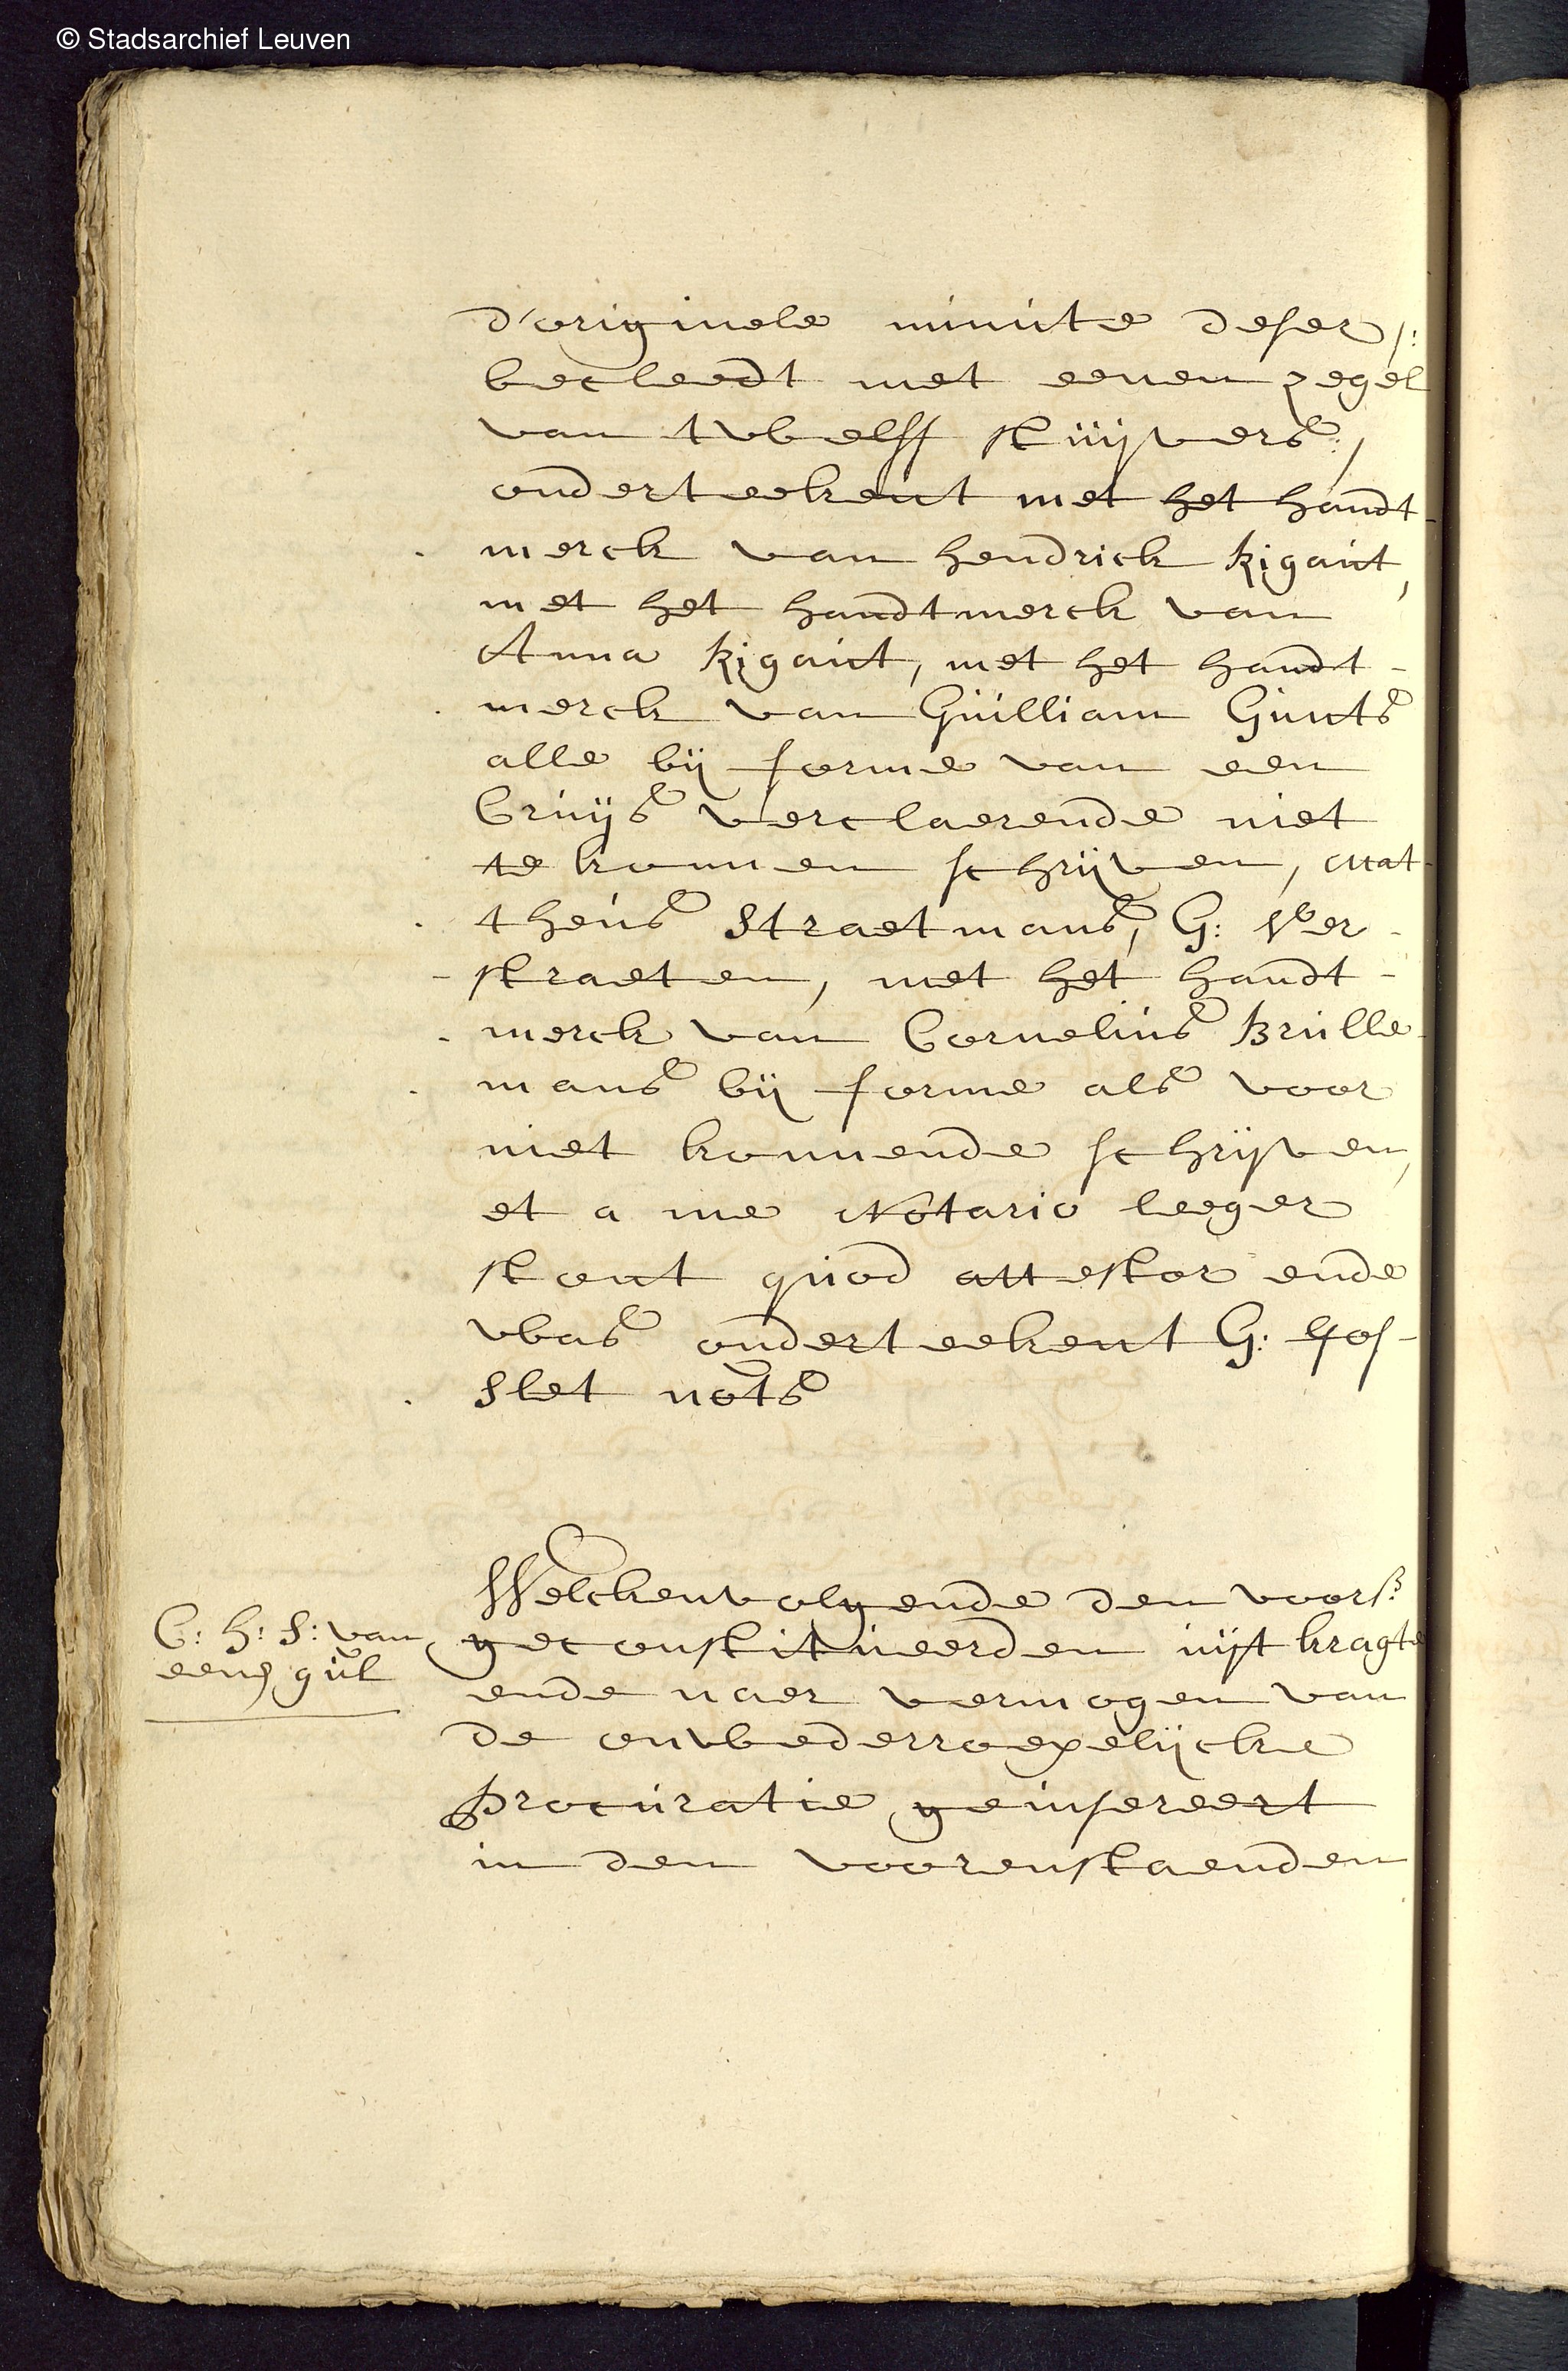 © Stadsarchief Leuven
d'originele minute deser /:
becleedt met eenen zegel
van twelff stuijvers :/
onderteekent met het handt-
merck van hendrick Rigaut,
met het handtmerck van
Anna Rigaut, met het handt-
merck van Guilliam Gunts
alle bij forme van een
Cruijs verclaerende niet
te konnen schrijven, Mat-
theus Straetmans, G: Ver-
straeten, met het handt-
merck van Cornelius Brulle-
mans bij forme als voor
niet konnende schrijven,
et a me Notario leeger
stont quod attestor ende
was onderteekent G: Gos-
slet nots
Welckenvolgende den voors:
geconstitueerden uijt kragte
C: H: S: van
eenen gul
ende naer vermogen van
de onwederroepelijcke
procuratie geinsereert
in den voorenstaenden